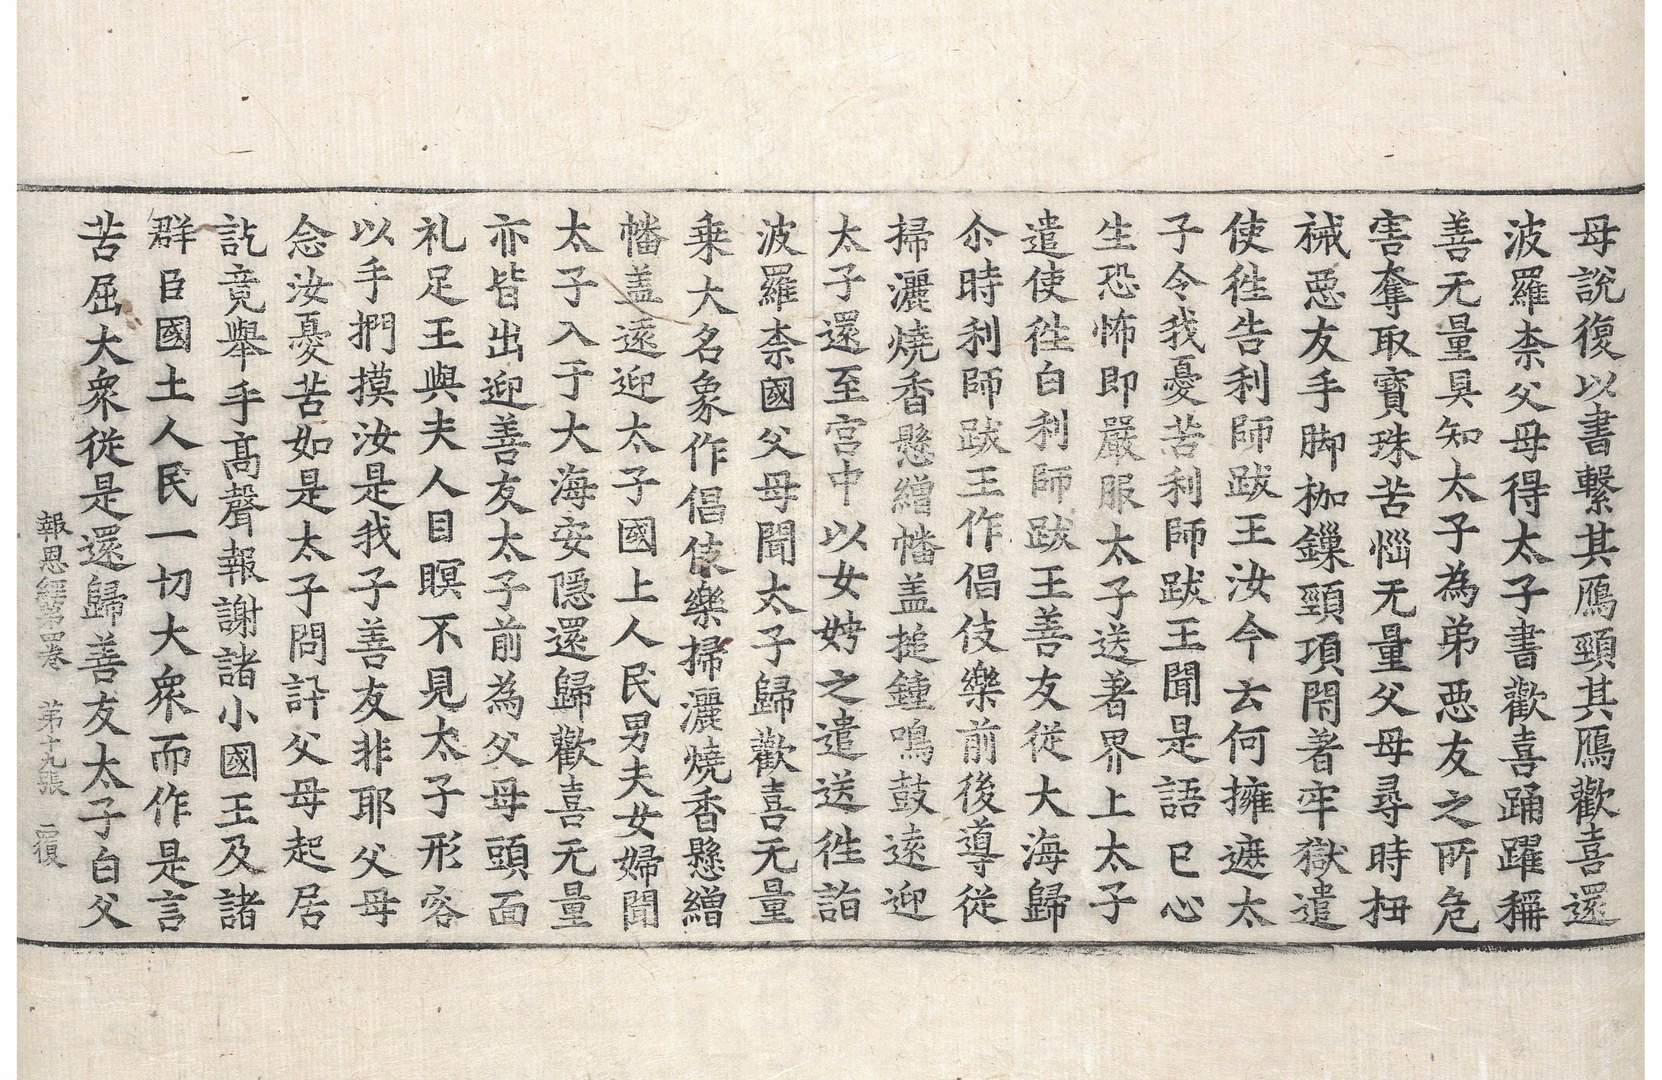 母說復以書繫其鴈頸其鴈歡喜還
波羅柰父母得太子書歡喜踊躍稱
善无量具知太子為弟惡友之所危
害奪取寶珠苦惱无量父母尋時杻
械惡友手脚枷鏁頸項閇著牢獄遣
使徃告利師跋王汝今云何擁遮太
子令我憂苦利師跋王聞是語已心
生恐怖即嚴服太子送著界上太子
遣使徃白利師跋王善友從大海歸
尒時利師跋王作倡伎樂前後導從
掃灑燒香懸繒幡盖搥鍾鳴鼓遠迎
太子還至宮中以女娉之遣送徃詣
波羅柰國父母聞太子歸歡喜无量
乗大名象作倡伎樂掃灑燒香懸繒
幡盖遠迎太子國土人民男夫女婦聞
太子入于大海安隱還歸歡喜无量
亦皆出迎善友太子前為父母頭面
礼足王與夫人目瞑不見太子形容
以手捫摸汝是我子善友非耶父母
念汝憂苦如是太子問訊父母起居
訖竟舉手髙聲報謝諸小國王及諸
群臣國土人民一切大衆而作是言
苦屈大衆從是還歸善友太子白父
報恩經第四卷　第十九張